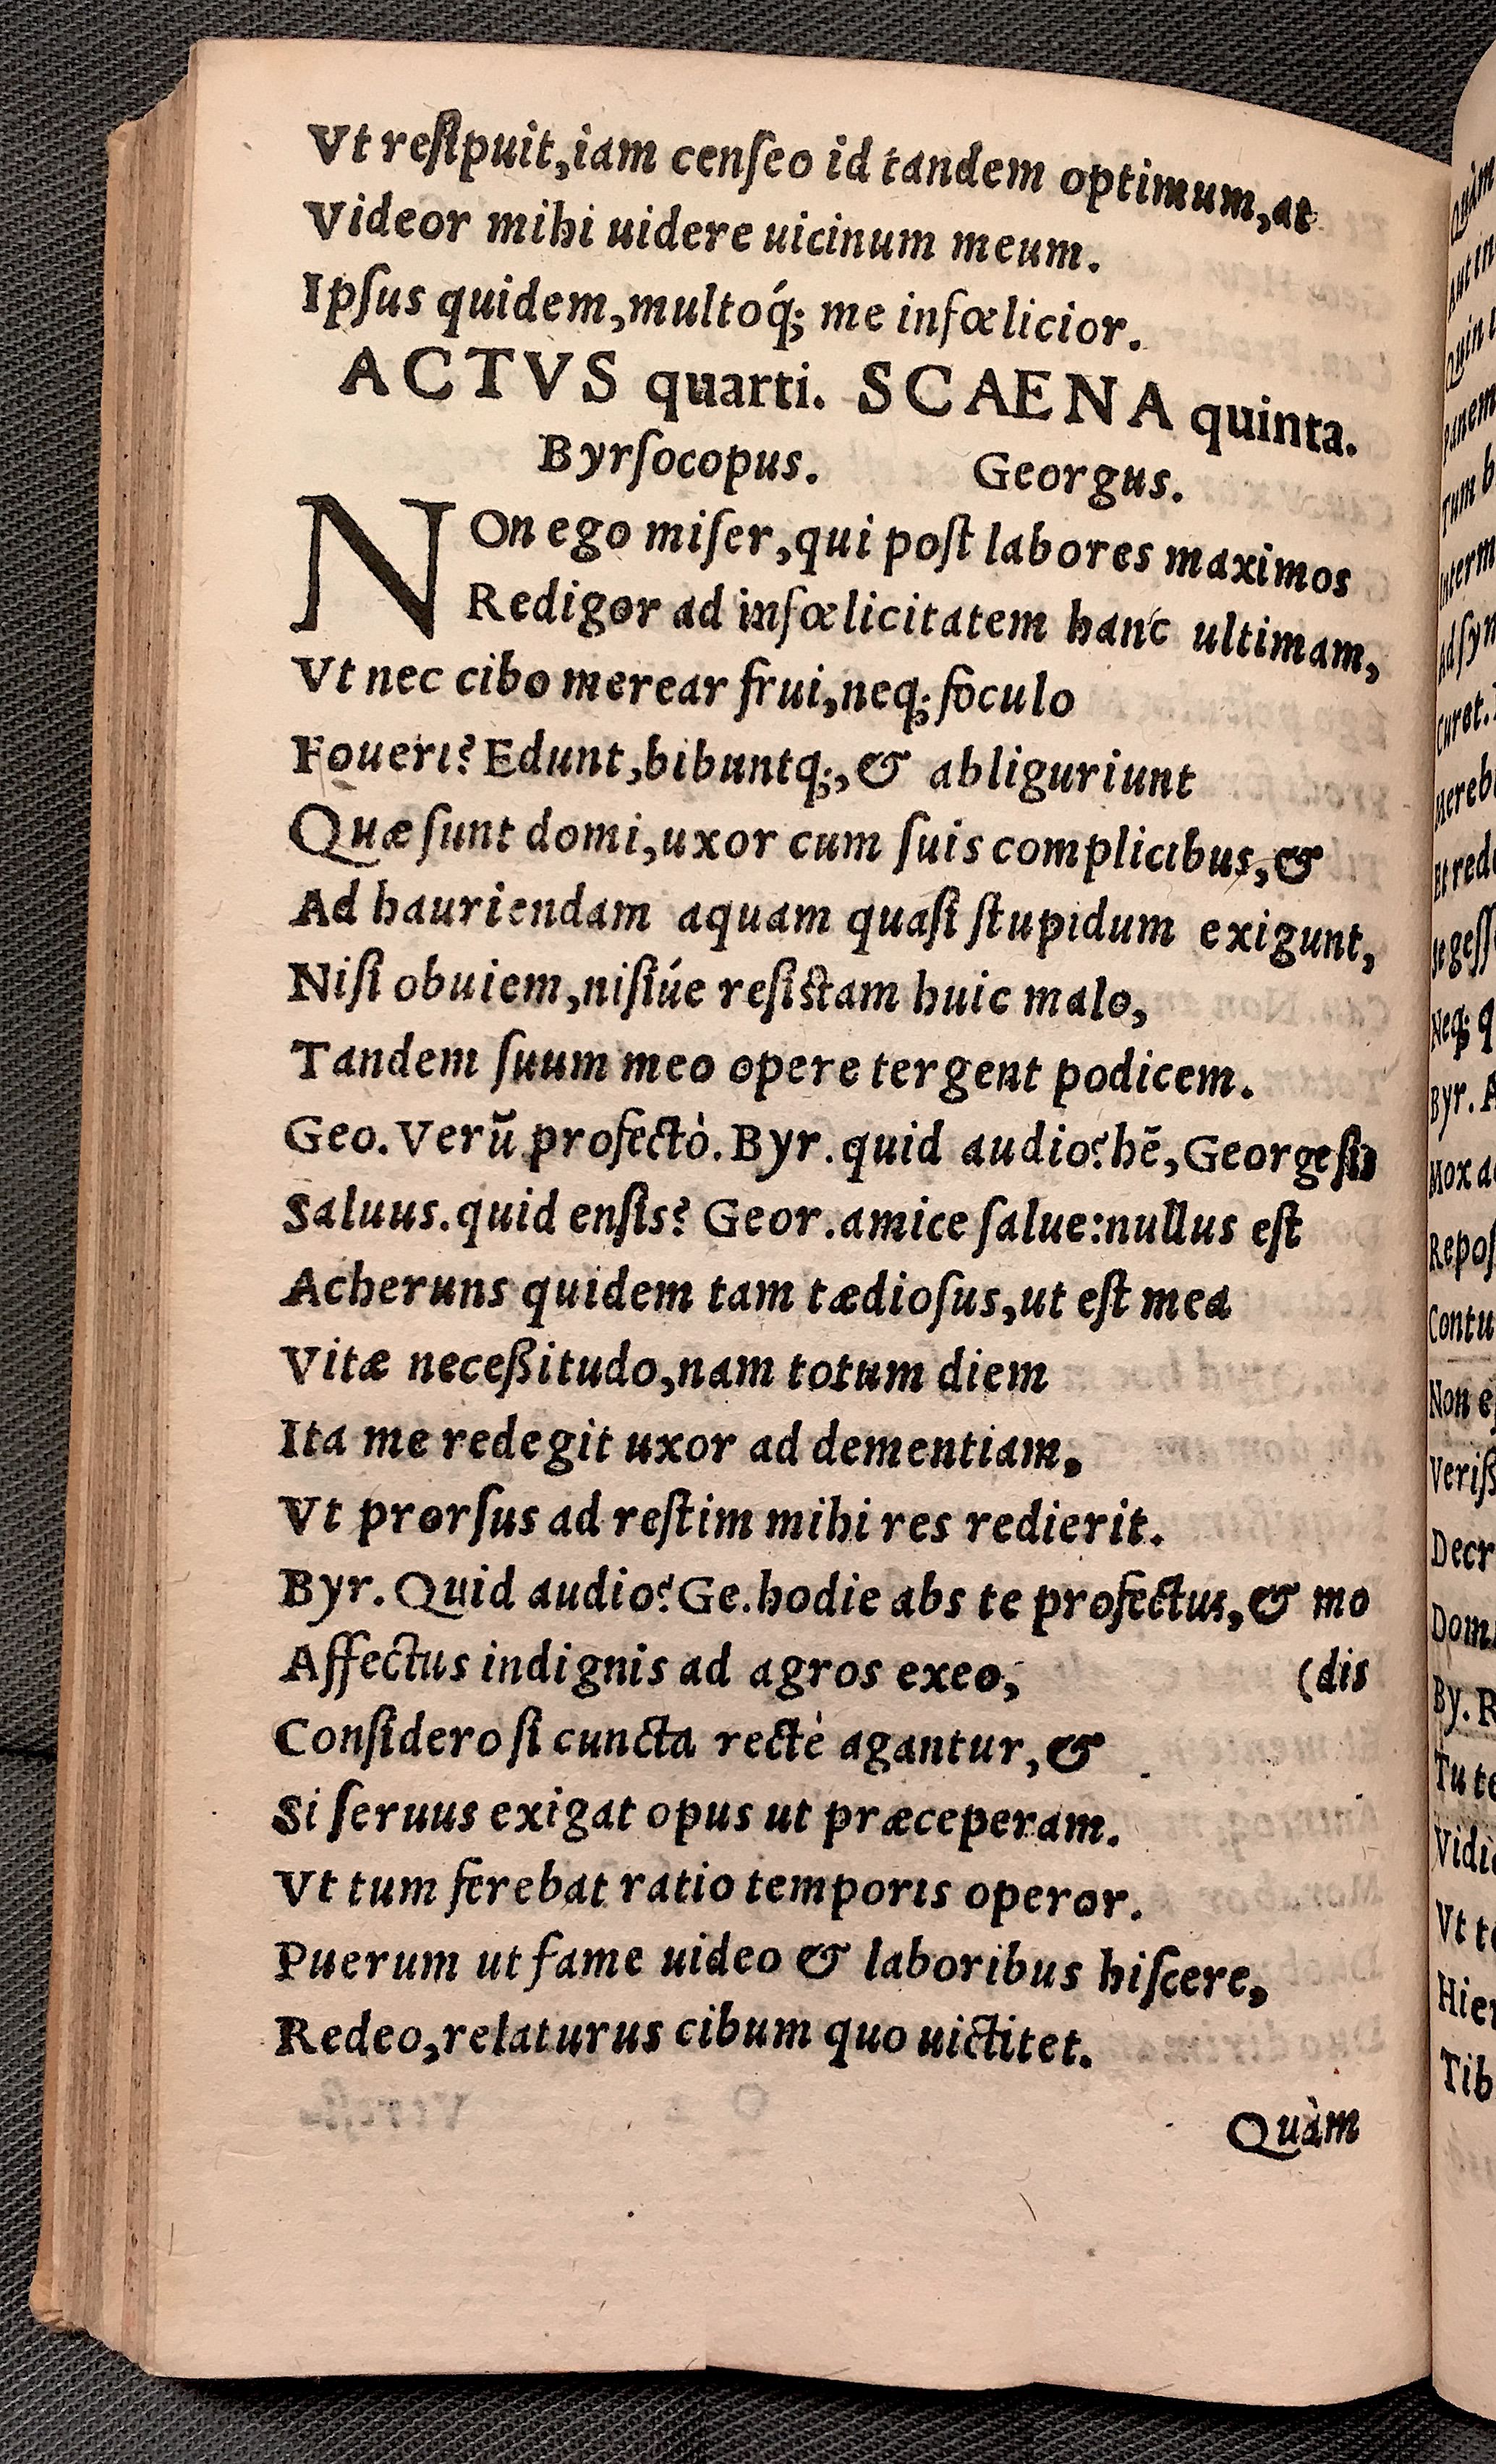 Vt reſipuit,iam cenſeo id tandem optimum,at
Videor mihi uidere uicinum meum.
Ipſus quidem,multoq́; me infœlicior.
ACTVS quarti. SCAENA quinta.
Byrſocopus. Georgus.
NOn ego miſer,qui poſt labores maximos
Redigor ad infœlicitatem hanc ultimam,
Vt nec cibo merear frui,neq; foculo
Foueri? Edunt,bibuntq;,& abliguriunt
Quæ ſunt domi,uxor cum ſuis complicibus,&
Ad hauriendam aquam quaſi ſtupidum exigunt,
Niſi obuiem,niſiúe reſiſtam huic malo,
Tandem ſuum meo opere tergent podicem.
Geo. Verũ profectò. Byr. quid audio? hẽ, George ſis
Saluus. quid enſis? Geor. amice ſalue: nullus eſt
Acheruns quidem tam tædioſus,ut eſt mea
Vitæ neceßitudo,nam totum diem
Ita me redegit uxor ad dementiam,
Vt prorſus ad reſtim mihi res redierit.
Byr. Quid audio? Ge. hodie abs te profectus,& mo
Affectus indignis ad agros exeo, (dis
Conſidero ſi cuncta rectè agantur,&
Si ſeruus exigat opus ut præceperam.
Vt tum ferebat ratio temporis operor.
Puerum ut fame uideo & laboribus hiſcere,
Redeo,relaturus cibum quo uictitet.
Quàm
Quàm
panem
Tum b
Interm
Ad ſyn
Curet.
Et red
Neq; q
Byr. A
Mox a
Repoſ
Contu
Non e
Veriß
Decr
Dom
By. R
Tu te
Vidi
Vt t
Hier
Tib